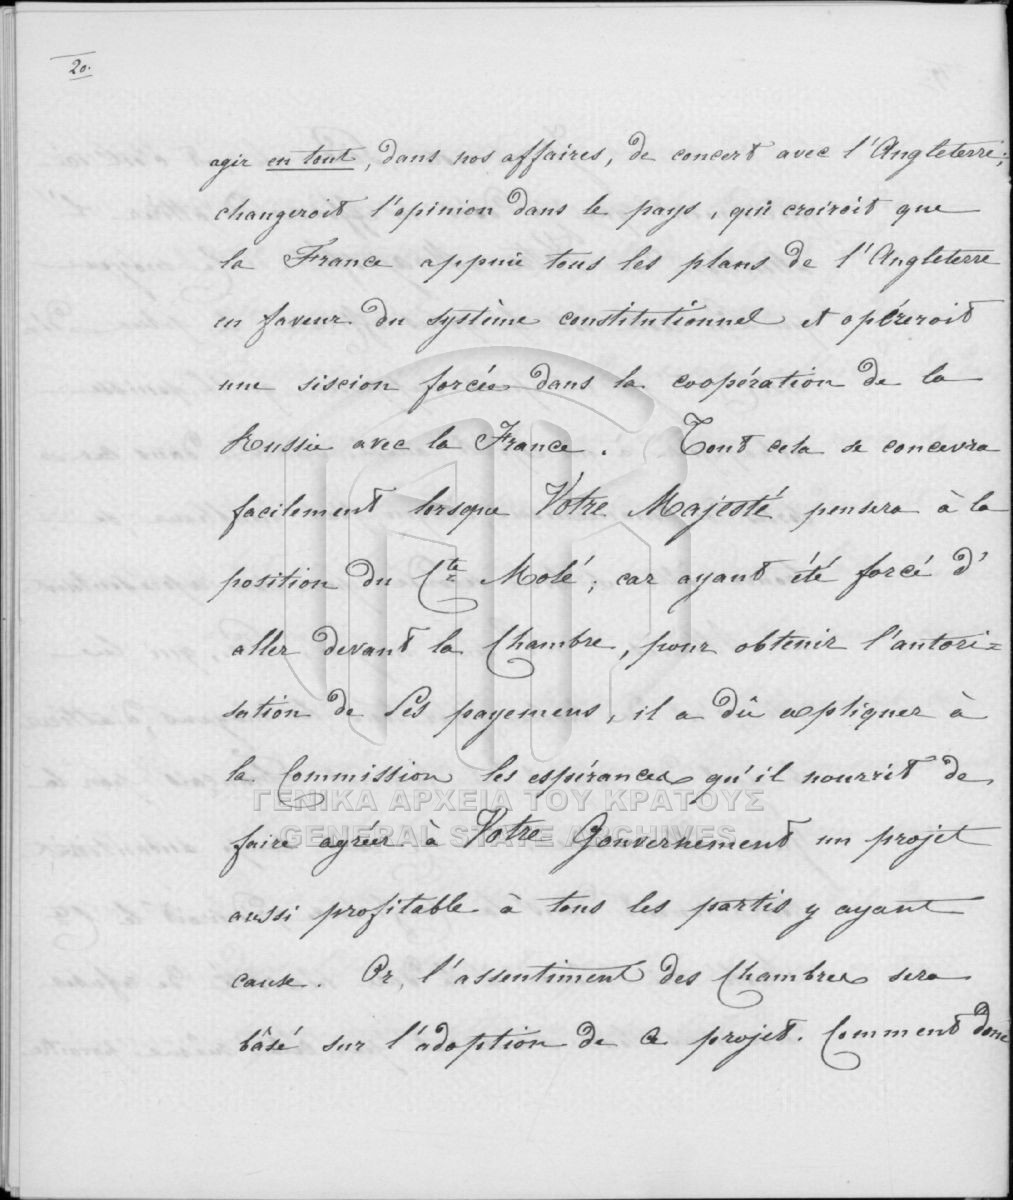 20.
agir en tout, dans nos affaires, de concert avec l'Angleterre;
changeroit l'opinion dans le pays, qui croiroit que
la France appuie tous les plans de l'Angleterre
en faveur du système constitutionnel et opéreroit
une siscion forcée dans la coopération de la
Russie avec la France. Tout cela se concevra
facilement lorsque Votre Majesté pensera à la
position du Cte Molé; car ayant été forcé d'
aller devant la Chambre, pour obtenir l'autori=
sation de ses payemens, il a dû expliquer à
la Commission les espérances qu'il nourrit de
ΓΕΝΙΚΑ ΑΡΧΕΙΑ ΤΟΥ ΚΡΑΤΟΥΣ
faire agréer à Votre Gouvernement un projet
GENERAL STATE ARCHIVES
aussi profitable à tous les partis y ayant
cause. Or, l'assentiment des Chambres sera
bâsé sur l'adoption de ce projet. Comment donc